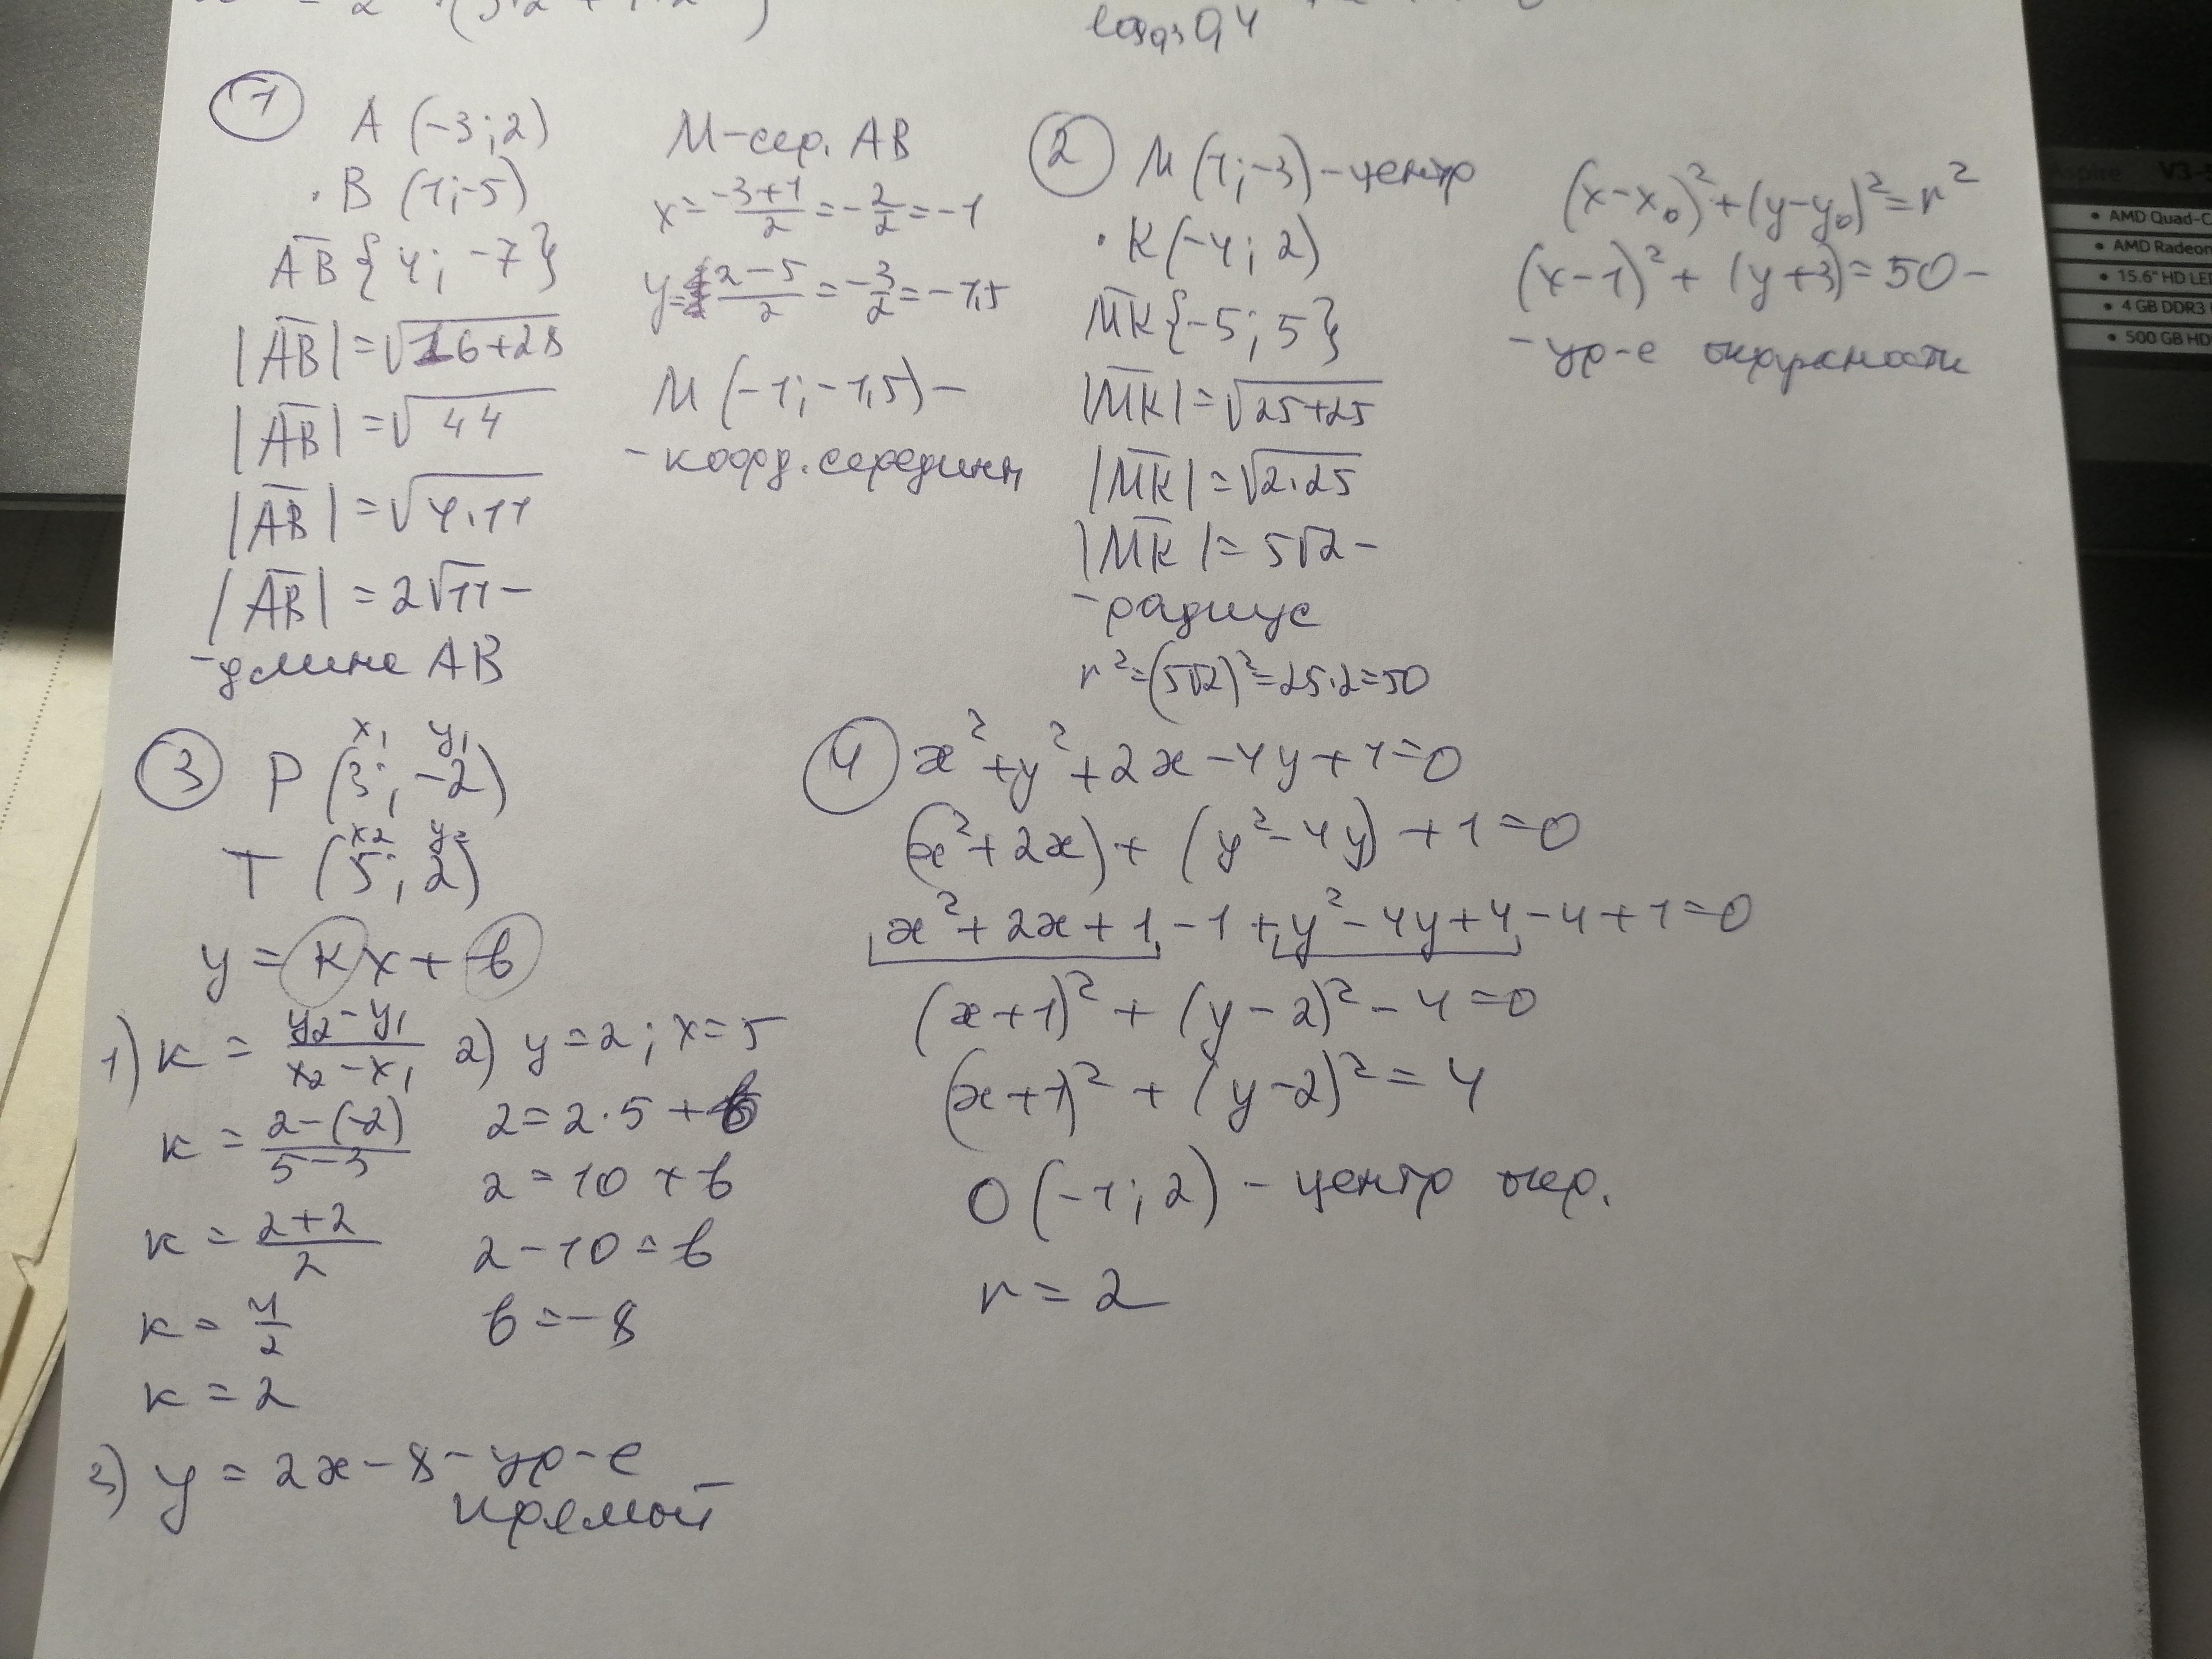 log₀,₃ 0,4
① A (-3; 2)
B (1; -5)
A̅B̅ {4; -7}
|A̅B̅| = √16+28
|A̅B̅| = √44
|A̅B̅| = √4·11
|A̅B̅| = 2√11 -
- длина AB
M - сер. AB
x = -3+1/2 = -2/2 = -1
y = 2-5/2 = -3/2 = -1,5
M (-1; -1,5) -
- коорд. середины
② M (1; -3) - центр
K (-4; 2)
M̅K̅ {-5; 5}
|M̅K̅| = √25+25
|M̅K̅| = √2·25
|M̅K̅| = 5√2 -
- радиус
r² = (5√2)² = 25·2 = 50
(x-x₀)² + (y-y₀)² = r²
(x-1)² + (y+3) = 50 -
- ур-е окружности
③ x₁ y₁
P (3; -2)
x₂ y₂
T (5; 2)
y = kx + b
1) k = y₂-y₁/x₂-x₁
k = 2-(-2)/5-3
k = 2+2/2
k = 4/2
k = 2
2) y = 2; x = 5
2 = 2·5 + b
2 = 10 + b
2 - 10 = b
b = -8
3) y = 2x - 8 - ур-е
прямой
④ x² + y² + 2x - 4y + 1 = 0
(x² + 2x) + (y² - 4y) + 1 = 0
x² + 2x + 1 - 1 + y² - 4y + 4 - 4 + 1 = 0
(x+1)² + (y-2)² - 4 = 0
(x+1)² + (y-2)² = 4
O (-1; 2) - центр окр.
r = 2
V3-
• AMD Quad-C
• AMD Radeon
• 15.6" HD LE
• 4 GB DDR3
• 500 GB HD